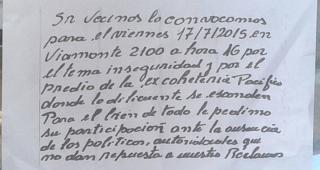 Sr Vecinos lo convocamos
para el viernes 17/7/2015 en
Viamonte 2100 a hora 16 por
el tema inseguridad y por el
predio de la ex coheteria Pacifico
donde lo dilicuente se esconden
Para el bien de todo le pedimo
su participación ante la ausencia
de los politicos, autoridades que
no dan repuesta a nuestro Reclamos